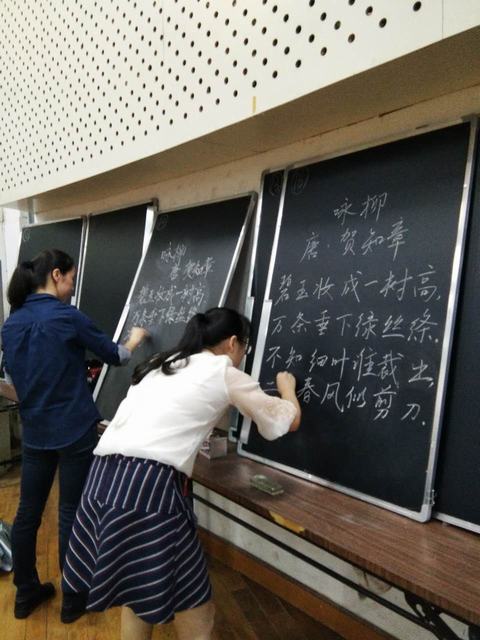 咏柳
唐·贺知章
碧玉妆成一树高,
万条垂下绿丝绦.
不知细叶谁裁出,
二 春风似剪刀.
咏柳
唐·贺知章
碧玉妆成一树高,
万条垂下绿丝绦